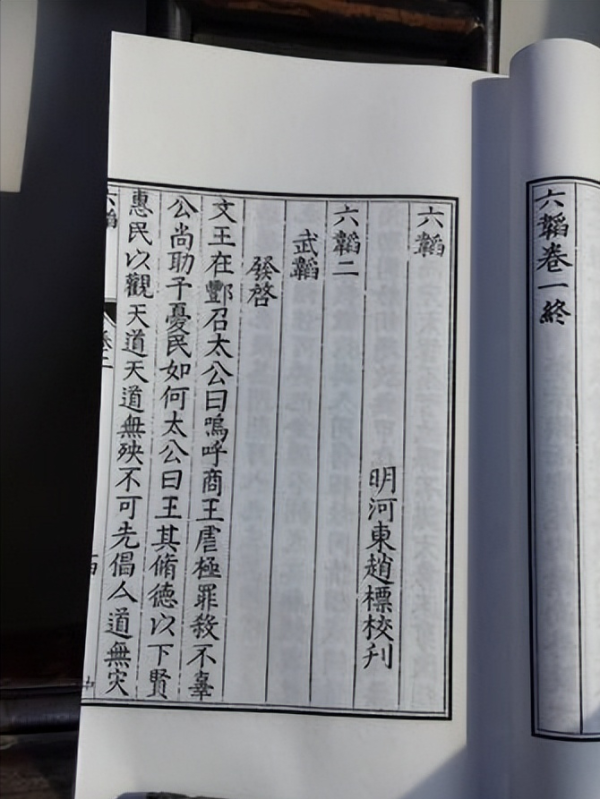 六韜卷一終
六韜
明河東趙標校刋
六韜二
武韜
發啓
文王在酆召太公曰嗚呼商王虐極罪殺不辜
公尚助予憂民如何太公曰王其脩德以下賢
惠民以觀天道天道無殃不可先倡人道無灾
六韜
卷二